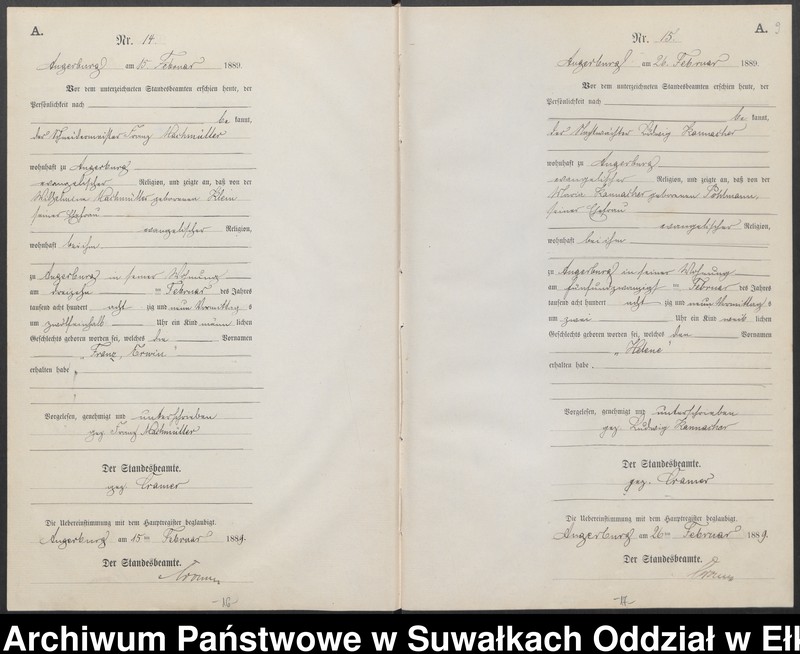 A.
Nr. 14
Angerburg am 15 Februar 1889.
Vor dem unterzeichneten Standesbeamten erschien heute, der
Persönlichkeit nach
be kannt,
der Schneidermeister Franz Machmüller
wohnhaft zu Angerburg
evangelischer Religion, und zeigte an, daß von der
Wilhelmine Machmüller geborenen Klein
seiner Ehefrau
evangelischer Religion,
wohnhaft bei ihm
zu Angerburg in seiner Wohnung
am dreizehn ten Februar des Jahres
tausend acht hundert acht zig und neun Vormittag s
um zwölfeinhalb Uhr ein Kind männ lichen
Geschlechts geboren worden sei, welches die Vornamen
„Franz, Erwin“
erhalten habe
Vorgelesen, genehmigt und unterschrieben
gez. Franz Machmüller
Der Standesbeamte.
gez. Cramer
Die Uebereinstimmung mit dem Hauptregister beglaubigt.
Angerburg am 15ten Februar 1889.
Der Standesbeamte.
Cramer
-16-
A. 9
Nr. 15
Angerburg am 26. Februar 1889.
Vor dem unterzeichneten Standesbeamten erschien heute, der
Persönlichkeit nach
be kannt,
der Nachtwächter Ludwig Kannacher
wohnhaft zu Angerburg
evangelischer Religion, und zeigte an, daß von der
Maria Kannacher geborenen Pohlmann,
seiner Ehefrau
evangelischer Religion,
wohnhaft bei ihm
zu Angerburg in seiner Wohnung
am fünfundzwanzigst ten Februar des Jahres
tausend acht hundert acht zig und neun Vormittag s
um zwei Uhr ein Kind weib lichen
Geschlechts geboren worden sei, welches den Vornamen
„Helene“
erhalten habe.
Vorgelesen, genehmigt und unterschrieben
gez. Ludwig Kannacher
Der Standesbeamte.
gez. Cramer
Die Uebereinstimmung mit dem Hauptregister beglaubigt.
Angerburg am 26ten Februar 1889.
Der Standesbeamte.
Cramer
-17-
Archiwum Państwowe w Suwałkach Oddział w Ełk